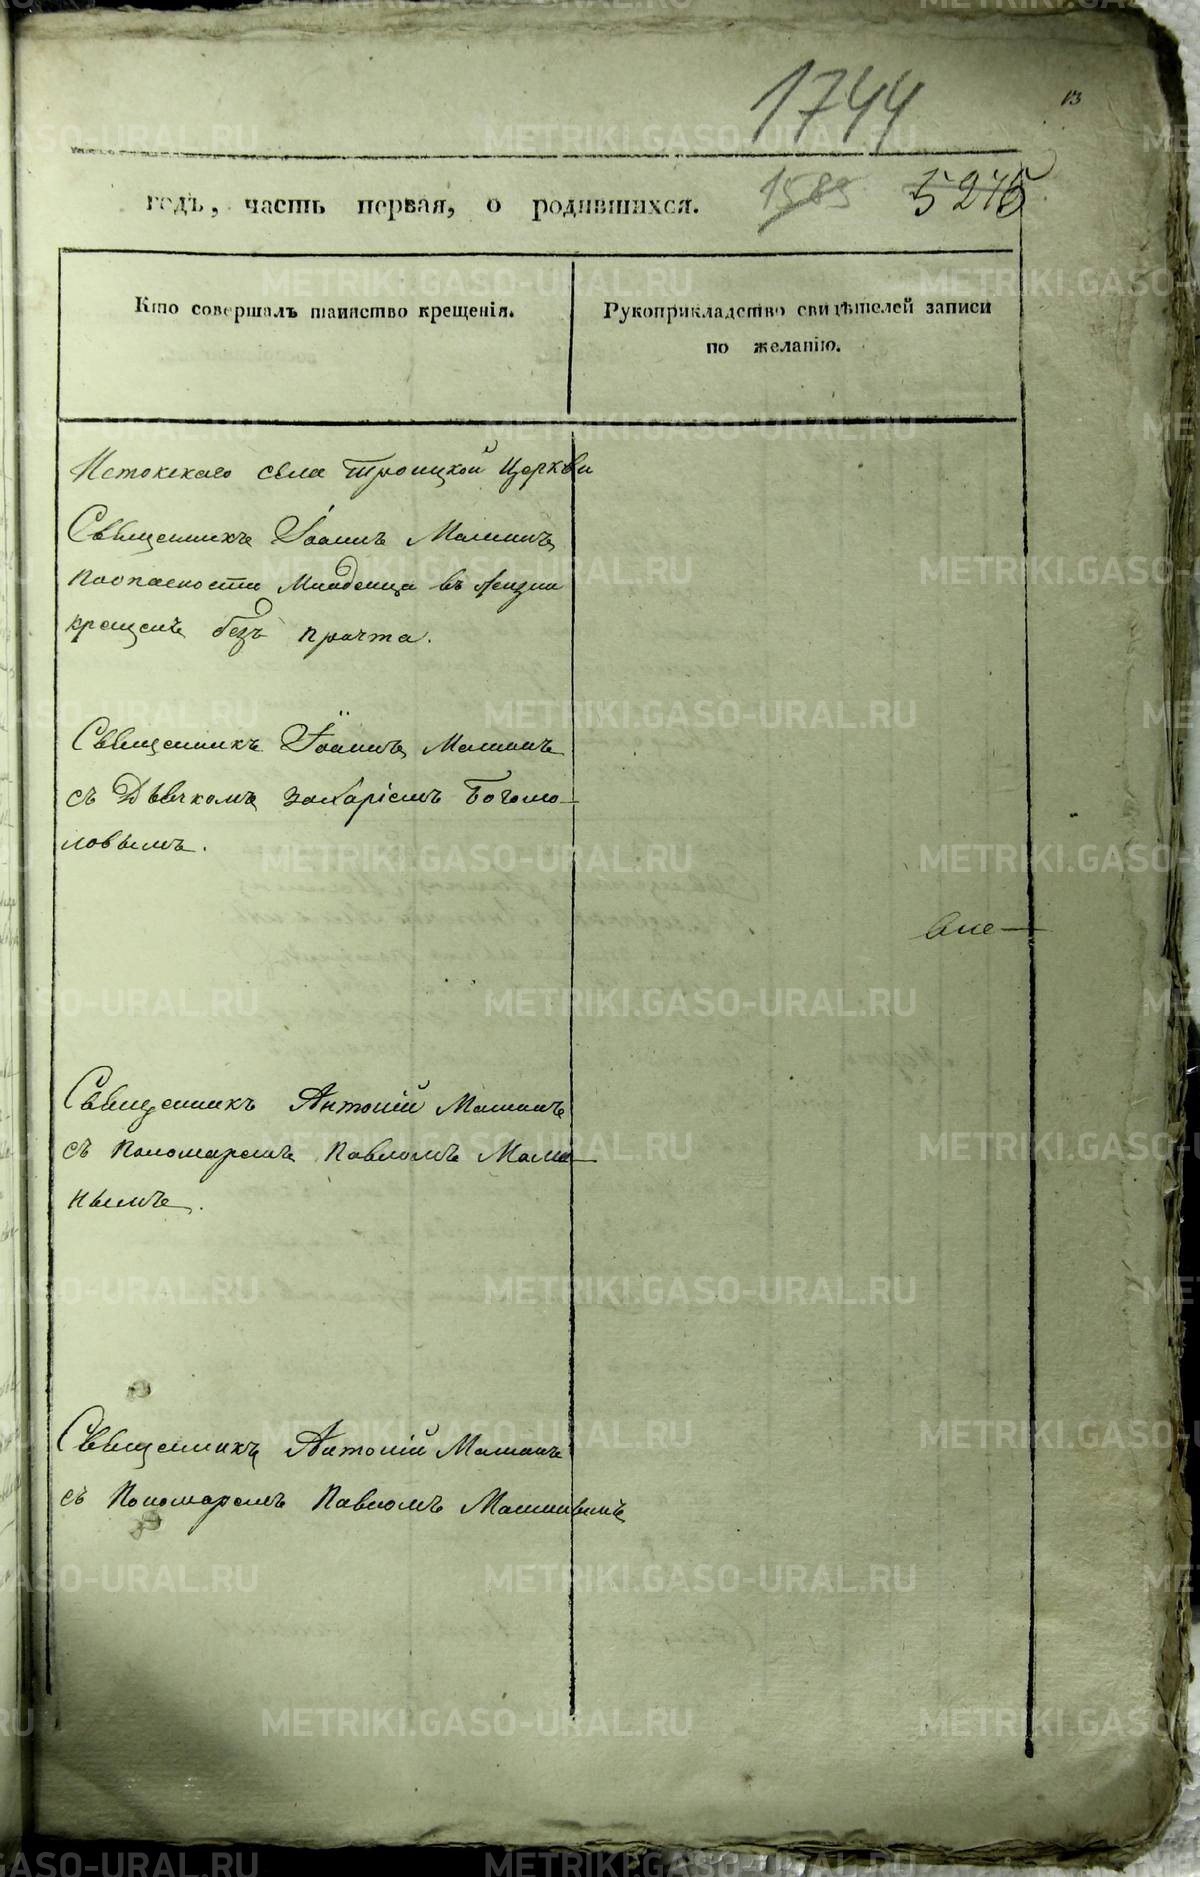 1744
13
годъ, часть первая, о родившихся.
1583
5275
Кто совершалъ таинство крещенія.
Рукоприкладство свидѣтелей записи
по желанію.
Истокскаго села Троицкой Церкви
Священникъ Іоаннъ Маминъ
поопасности Младенца въ жизни
крещенъ безъ причта.
Священникъ Іоаннъ Маминъ
съ Дьячкомъ Захаріемъ Богомо-
ловымъ.
Священникъ Антоній Маминъ
съ Пономаремъ Павломъ Мами-
нымъ.
Священникъ Антоній Маминъ
съ Пономаремъ Павломъ Маминымъ
METRIKI.GASO-URAL.RU